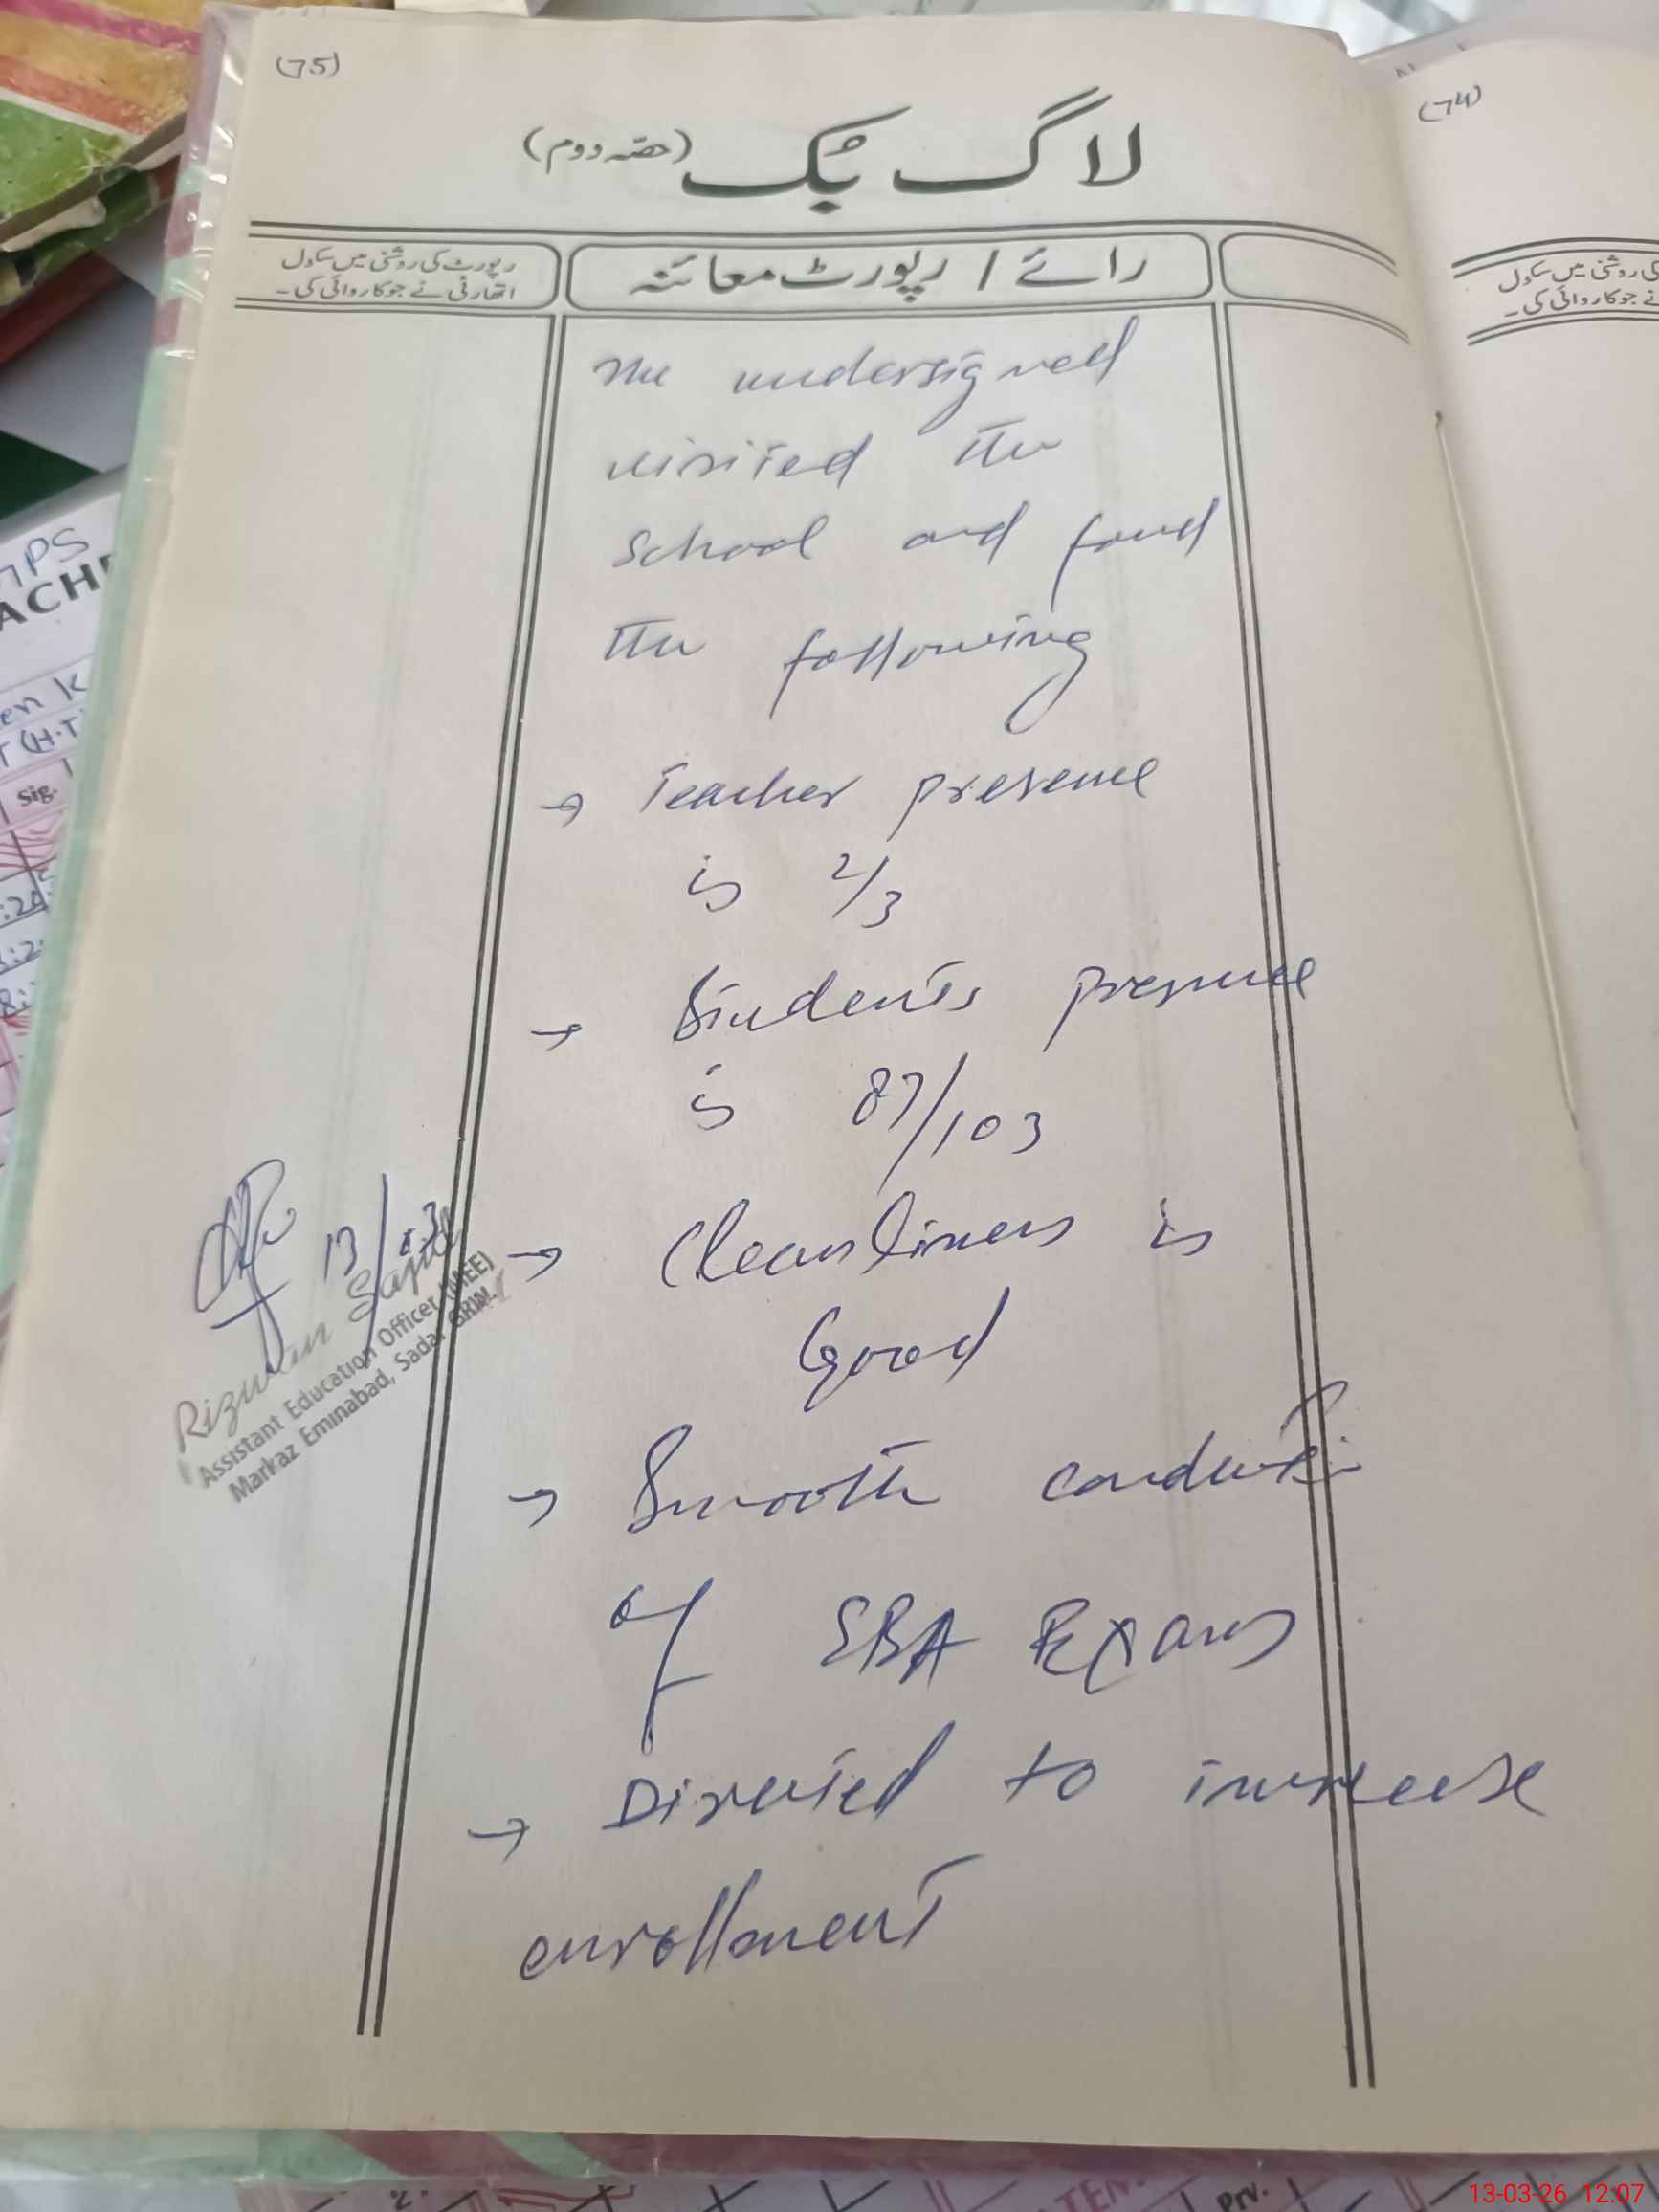 (75)
لاگ بک (حصہ دوم)
رائے / رپورٹ معائنہ
رپورٹ کی روشنی میں سکول
اتھارٹی نے جو کاروائی کی۔
The undersigned
visited the
school and found
the following
→ Teacher presence
is 2/3
→ Students presence
is 87/103
→ Cleanliness is
Good
→ Smooth conduct
of SBA Exams
→ Directed to increase
enrollment
13/03
Rizwan Sajid
Assistant Education Officer (MEE)
Markaz Eminabad, Sadar GRW.
(74)
کی روشنی میں سکول
نے جو کاروائی کی۔
GPS
ACHE
en K
T (H.T
Sig.
TEN.
Prv.
13-03-26 12:07